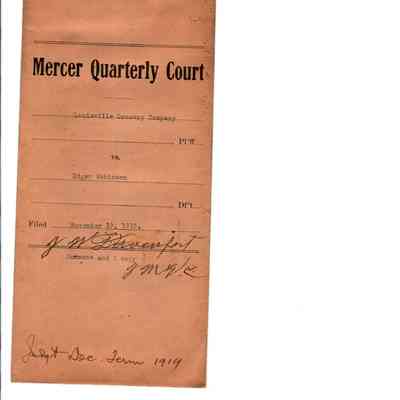 Mercer Quarterly Court
Louisville Grocery Company
Pl'ff
vs.
Edgar Robinson
Def't
Filed November 19, 191
J W Davenport
Summons and 1 copy
Judgt Dec. Term 1919